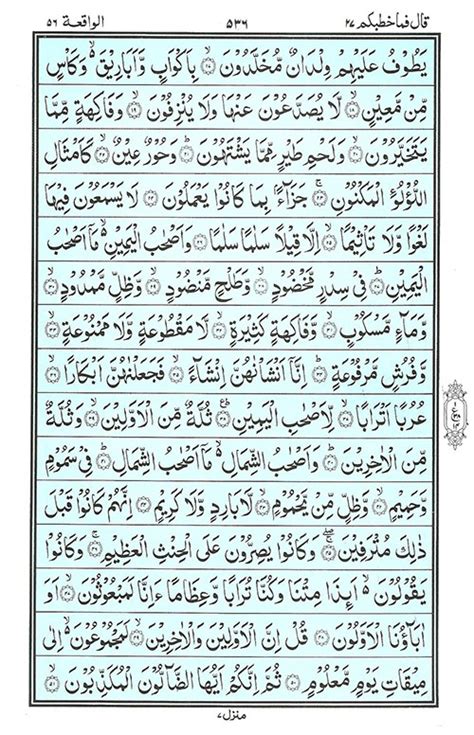 قال فما خطبكم ۲۷ ۵۳۶ الواقعة ۵۶
يَطُوْفُ عَلَيْهِمْ وِلْدَانٌ مُّخَلَّدُوْنَ ۙ﴿۱۷﴾ بِاَكْوَابٍ وَّاَبَارِيْقَ ۙ۬ وَكَاْسٍ
مِّنْ مَّعِيْنٍ ۙ﴿۱۸﴾ لَّا يُصَدَّعُوْنَ عَنْهَا وَلَا يُنْزِفُوْنَ ۙ﴿۱۹﴾ وَفَاكِهَةٍ مِّمَّا
يَتَخَيَّرُوْنَ ۙ﴿۲۰﴾ وَلَحْمِ طَيْرٍ مِّمَّا يَشْتَهُوْنَ ؕ﴿۲۱﴾ وَحُوْرٌ عِيْنٌ ۙ﴿۲۲﴾ كَاَمْثَالِ
اللُّؤْلُؤِ الْمَكْنُوْنِ ۚ﴿۲۳﴾ جَزَآءًۢ بِمَا كَانُوْا يَعْمَلُوْنَ ﴿۲۴﴾ لَا يَسْمَعُوْنَ فِيْهَا
لَغْوًا وَّلَا تَاْثِيْمًا ۙ﴿۲۵﴾ اِلَّا قِيْلًا سَلٰمًا سَلٰمًا ﴿۲۶﴾ وَاَصْحٰبُ الْيَمِيْنِ ۙ۬ مَاۤ اَصْحٰبُ
الْيَمِيْنِ ؕ﴿۲۷﴾ فِيْ سِدْرٍ مَّخْضُوْدٍ ۙ﴿۲۸﴾ وَّطَلْحٍ مَّنْضُوْدٍ ۙ﴿۲۹﴾ وَّظِلٍّ مَّمْدُوْدٍ ۙ﴿۳۰﴾
وَّمَآءٍ مَّسْكُوْبٍ ۙ﴿۳۱﴾ وَّفَاكِهَةٍ كَثِيْرَةٍ ۙ﴿۳۲﴾ لَّا مَقْطُوْعَةٍ وَّلَا مَمْنُوْعَةٍ ۙ﴿۳۳﴾
وَّفُرُشٍ مَّرْفُوْعَةٍ ؕ﴿۳۴﴾ اِنَّاۤ اَنْشَاْنٰهُنَّ اِنْشَآءً ۙ﴿۳۵﴾ فَجَعَلْنٰهُنَّ اَبْكَارًا ۙ﴿۳۶﴾
عُرُبًا اَتْرَابًا ۙ﴿۳۷﴾ لِّاَصْحٰبِ الْيَمِيْنِ ؕ﴿۳۸﴾ ثُلَّةٌ مِّنَ الْاَوَّلِيْنَ ۙ﴿۳۹﴾ وَثُلَّةٌ
مِّنَ الْاٰخِرِيْنَ ؕ﴿۴۰﴾ وَاَصْحٰبُ الشِّمَالِ ۙ۬ مَاۤ اَصْحٰبُ الشِّمَالِ ؕ﴿۴۱﴾ فِيْ سَمُوْمٍ
وَّحَمِيْمٍ ۙ﴿۴۲﴾ وَّظِلٍّ مِّنْ يَّحْمُوْمٍ ۙ﴿۴۳﴾ لَّا بَارِدٍ وَّلَا كَرِيْمٍ ﴿۴۴﴾ اِنَّهُمْ كَانُوْا قَبْلَ
ذٰلِكَ مُتْرَفِيْنَ ۚۖ﴿۴۵﴾ وَكَانُوْا يُصِرُّوْنَ عَلَى الْحِنْثِ الْعَظِيْمِ ۚ﴿۴۶﴾ وَكَانُوْا
يَقُوْلُوْنَ ۙ۬ اَئِذَا مِتْنَا وَكُنَّا تُرَابًا وَّعِظَامًا ءَاِنَّا لَمَبْعُوْثُوْنَ ۙ﴿۴۷﴾ اَوَ
اٰبَآؤُنَا الْاَوَّلُوْنَ ﴿۴۸﴾ قُلْ اِنَّ الْاَوَّلِيْنَ وَالْاٰخِرِيْنَ ۙ﴿۴۹﴾ لَمَجْمُوْعُوْنَ ۙ۬ اِلٰى
مِيْقَاتِ يَوْمٍ مَّعْلُوْمٍ ﴿۵۰﴾ ثُمَّ اِنَّكُمْ اَيُّهَا الضَّآلُّوْنَ الْمُكَذِّبُوْنَ ۙ﴿۵۱﴾
منزل ۷